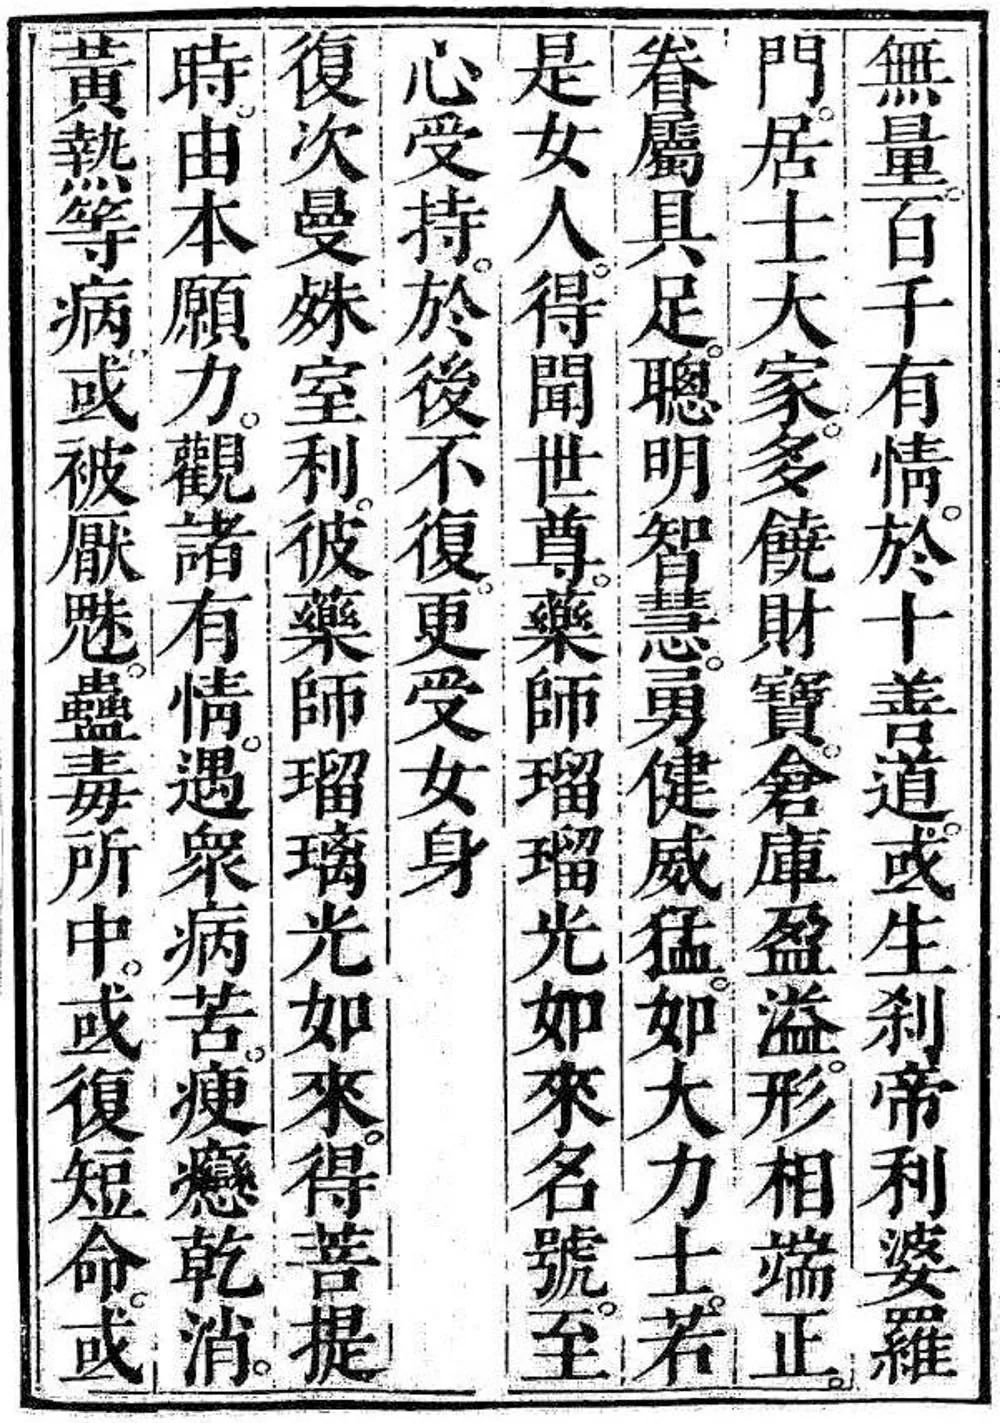 無量。百千有情。於十善道。或生刹帝利婆羅
門。居士大家。多饒財寶。倉庫盈溢。形相端正。
眷屬具足。聰明智慧。勇健威猛。如大力士。若
是女人。得聞世尊。藥師瑠瑠光如來名號。至
心受持。於後不復。更受女身
復次曼殊室利。彼藥師瑠璃光如來。得菩提
時。由本願力。觀諸有情。遇眾病苦。瘦㿈乾消。
黃熱等病。或被厭魅。蠱毒所中。或復短命。或